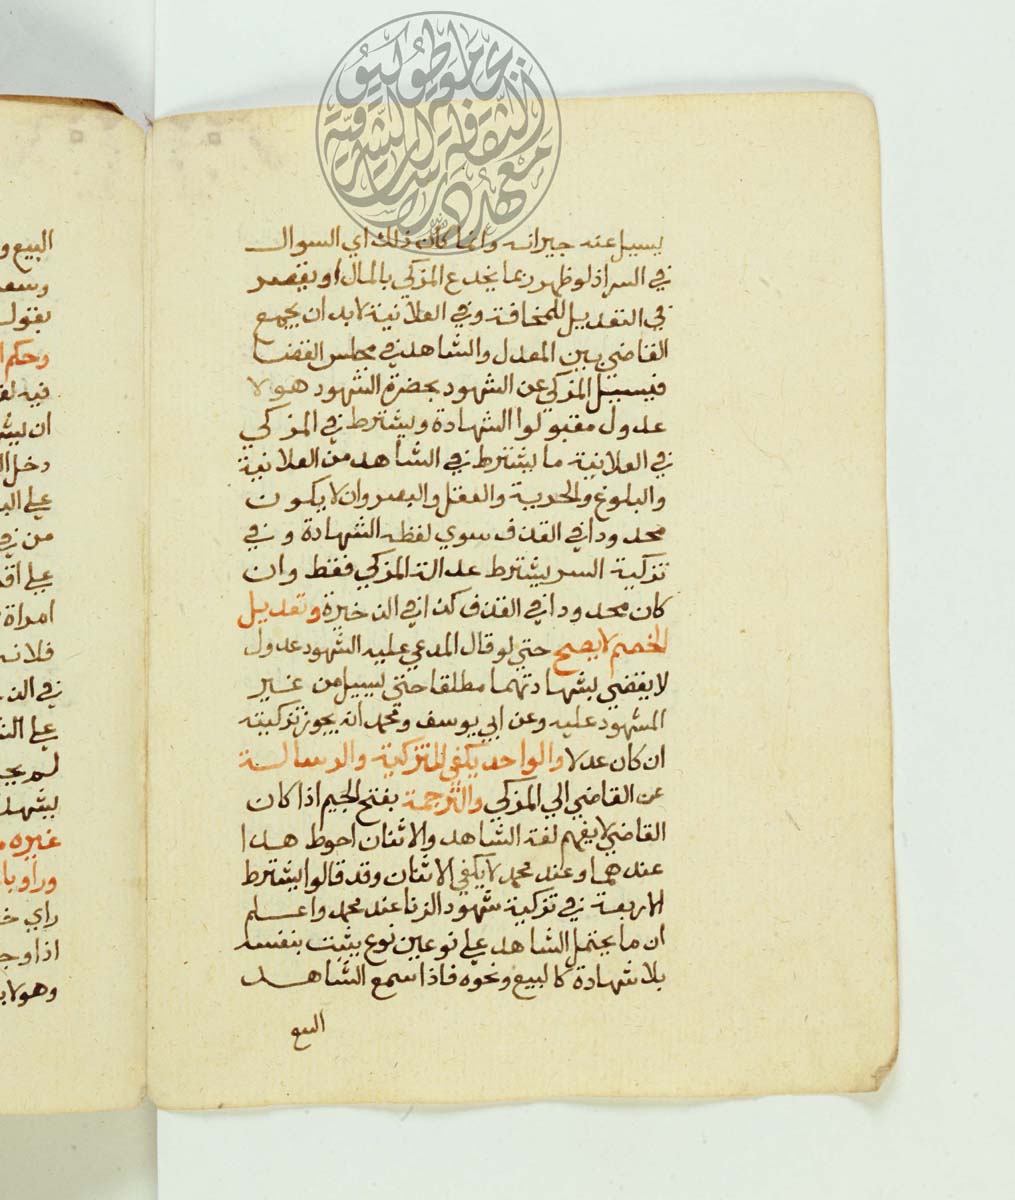 يسيل عنه جيرانه وانما كان ذلك اي السوال
في السر اذ لو ظهر ربما يخدع المزكي بالمال او يقصر
في التعديل للمخافة وفي العلانية لا بد ان يجمع
القاضي بين المعدل والشاهد في مجلس القضا
فيسيل المزكي عن الشهود بحضرة الشهود هولا
عدول مقبولوا الشهادة ويشترط في المزكي
في العلانية ما يشترط في الشاهد من العلانية
والبلوغ والحرية والعقل والبصر وان لا يكون
محدودا في القذف سوي لفظه الشهادة وفي
تزكية السر يشترط عدالة المزكي فقط وان
كان محدودا في القذف كذا في الذخيرة وتعديل
الخصم لا يصح حتي لو قال المدعي عليه الشهود عدول
لا يقضي بشهادتهما مطلقا حتي يسيل من غير
المشهود عليه وعن ابي يوسف ومحمد انه يجوز تزكيته
ان كان عدلا والواحد يكفي للتزكية والرسالة
عن القاضي الي المزكي والترجمة بفتح الجيم اذا كان
القاضي لا يفهم لغة الشاهد والاثنان احوط هذا
عندهما وعند محمد لا يكفي الا اثنان وقد قالوا يشترط
الاربعة في تزكية شهود الزنا عند محمد واعلم
ان ما يحتمل الشاهد علي نوعين نوع يثبت بنفسه
بلا شهادة كالبيع ونحوه فاذا سمع الشاهد
البيع
البيع و
يقول
وحكم ا
علي الب
من في
امراة
فلانه
في الذ
لم يج
يشهد
غيره
راي
اذا وج